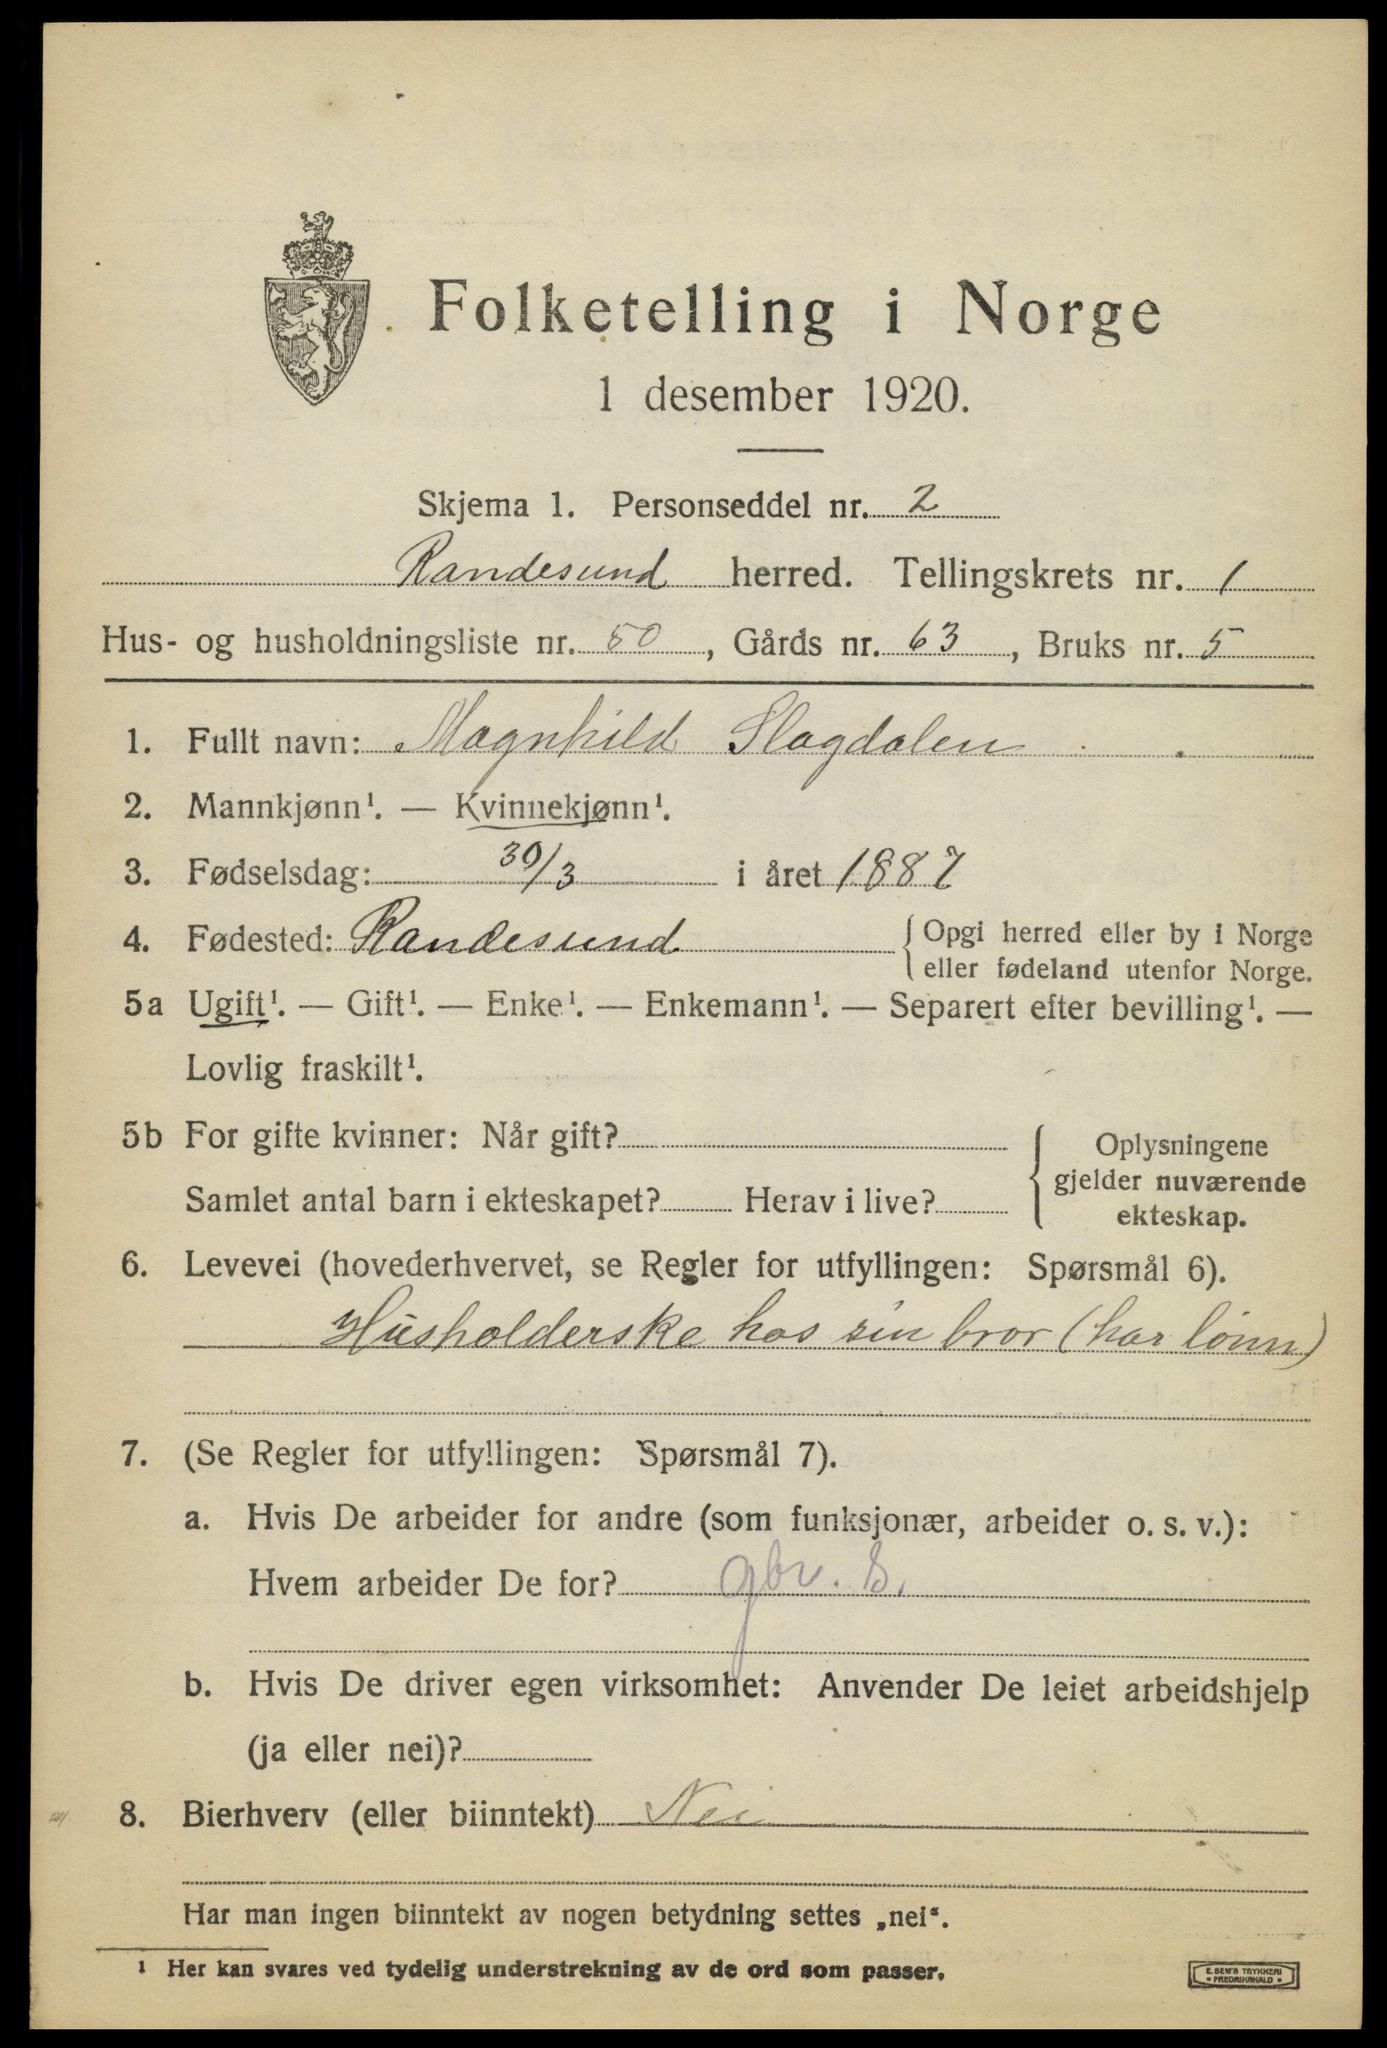 Folketelling i Norge
1 desember 1920.
Skjema 1. Personseddel nr. 2
Randesund herred. Tellingskrets nr. 1
Hus- og husholdningsliste nr. 50, Gårds nr. 63, Bruks nr. 5
1. Fullt navn: Magnhild Slagdalen
2. Mannkjønn¹. — Kvinnekjønn¹.
3. Fødselsdag: 30/3 i året 1887
4. Fødested: Randesund { Opgi herred eller by i Norge
eller fødeland utenfor Norge.
5a Ugift¹. — Gift¹. — Enke¹. — Enkemann¹. — Separert efter bevilling¹. —
Lovlig fraskilt¹.
5b For gifte kvinner: Når gift?
Samlet antal barn i ekteskapet? Herav i live?
{ Oplysningene
gjelder nuværende
ekteskap.
6. Levevei (hovederhvervet, se Regler for utfyllingen: Spørsmål 6).
Husholderske hos sin bror (har lønn)
7. (Se Regler for utfyllingen: Spørsmål 7).
a. Hvis De arbeider for andre (som funksjonær, arbeider o. s. v.):
Hvem arbeider De for? gbr. S.
b. Hvis De driver egen virksomhet: Anvender De leiet arbeidshjelp
(ja eller nei)?
8. Bierhverv (eller biinntekt) Nei
Har man ingen biinntekt av nogen betydning settes „nei“.
¹ Her kan svares ved tydelig understrekning av de ord som passer.
E. SEM'S TRYKKERI
• FREDRIKSHALD •